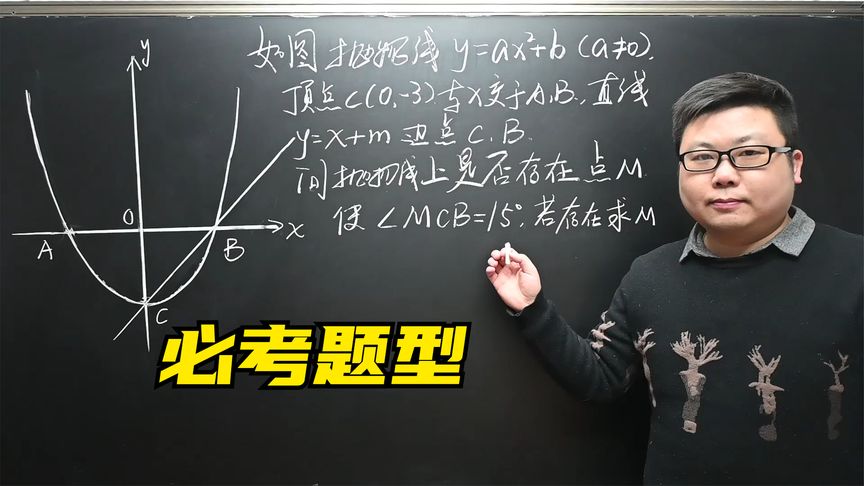 如图抛物线 y=ax²+b (a≠0).
顶点C(0,-3)与X交于A.B.,直线
y=x+m 过点 C.B.
问抛物线上是否存在点M
使∠MCB=15°.若存在求M
y
O
x
A
B
C
必考题型